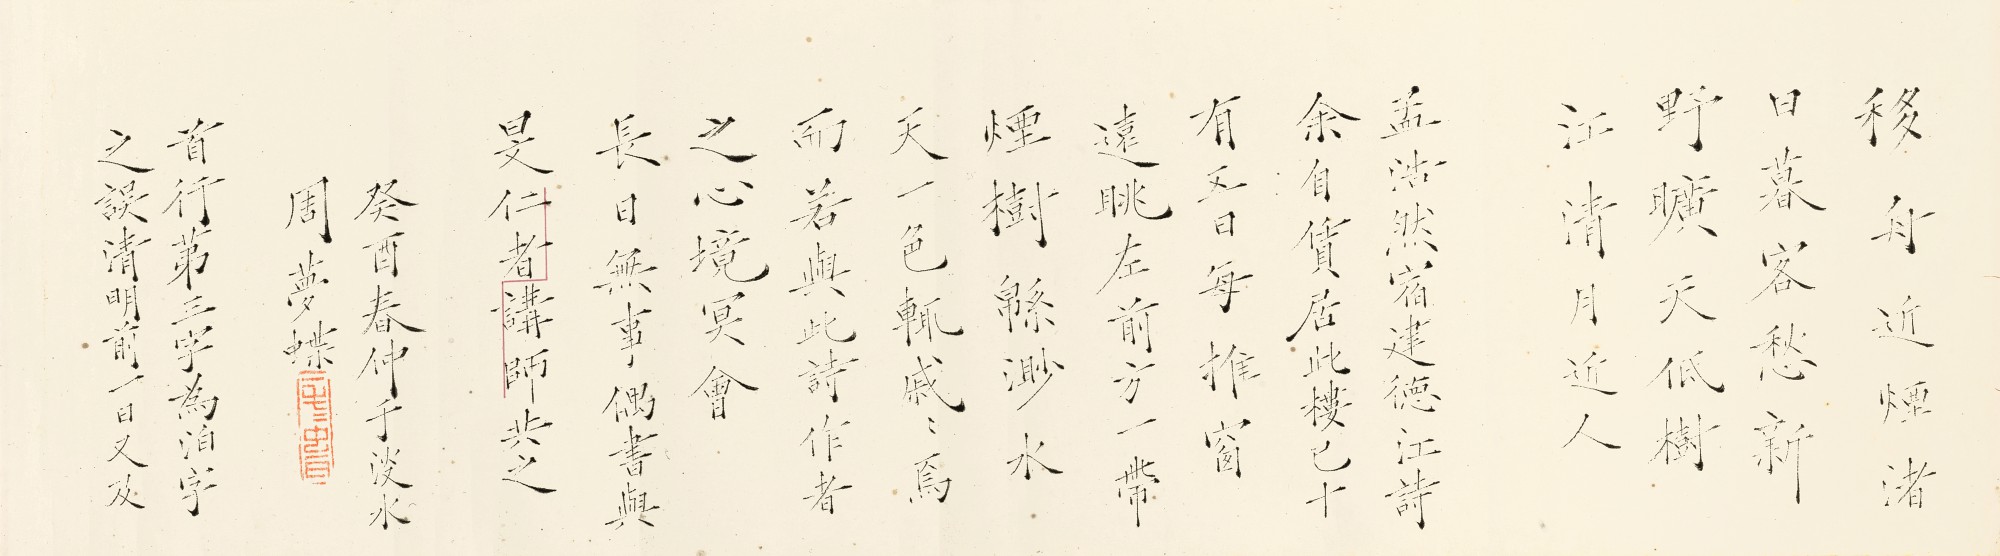 移舟近煙渚
日暮客愁新
野曠天低樹
江清月近人
孟浩然宿建德江詩
余自賃居此樓已十
有五日每推窗
遠眺左前方一帶
煙樹緜渺水
天一色輒戚〻焉
而若與此詩作者
之心境冥會
長日無事偶書與
旻仁者講師共之
癸酉春仲于淡水
周夢蝶
首行第三字為泊字
之誤清明前一日又及